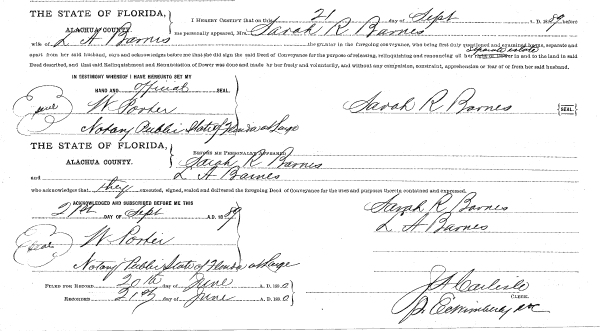 THE STATE OF FLORIDA,
ALACHUA COUNTY.
I HEREBY CERTIFY That on this 21 day of Sept A. D. 1889, before
me personally appeared, Mrs. Sarah R Barnes
wife of L A Barnes the grantor in the foregoing conveyance, who being first duly questioned and examined by me, separate and
apart from her said husband, says and acknowledges before me that she did sign the said Deed of Conveyance for the purpose of releasing, relinquishing and renouncing all her separate estate in and to the land in said
Deed described, and that said Relinquishment and Renunciation of Dower was done and made by her freely and voluntarily, and without any compulsion, constraint, apprehension or fear of or from her said husband.
IN TESTIMONY WHEREOF I HAVE HEREUNTO SET MY
HAND AND official SEAL.
seal W Porter Sarah R Barnes SEAL
Notary Public State of Florida at Large
THE STATE OF FLORIDA,
ALACHUA COUNTY.
BEFORE ME PERSONALLY APPEARED
Sarah R Barnes
and L A Barnes
who acknowledges that they executed, signed, sealed and delivered the foregoing Deed of Conveyance for the uses and purposes therein contained and expressed.
ACKNOWLEDGED AND SUBSCRIBED BEFORE ME THIS Sarah R Barnes
21st DAY OF Sept A.D. 1889 L A Barnes
seal W Porter
Notary Public State of Florida at Large
FILED FOR RECORD 20th day of June A. D. 1890
RECORDED 21st day of June A. D. 1890
Carlisle
CLERK.